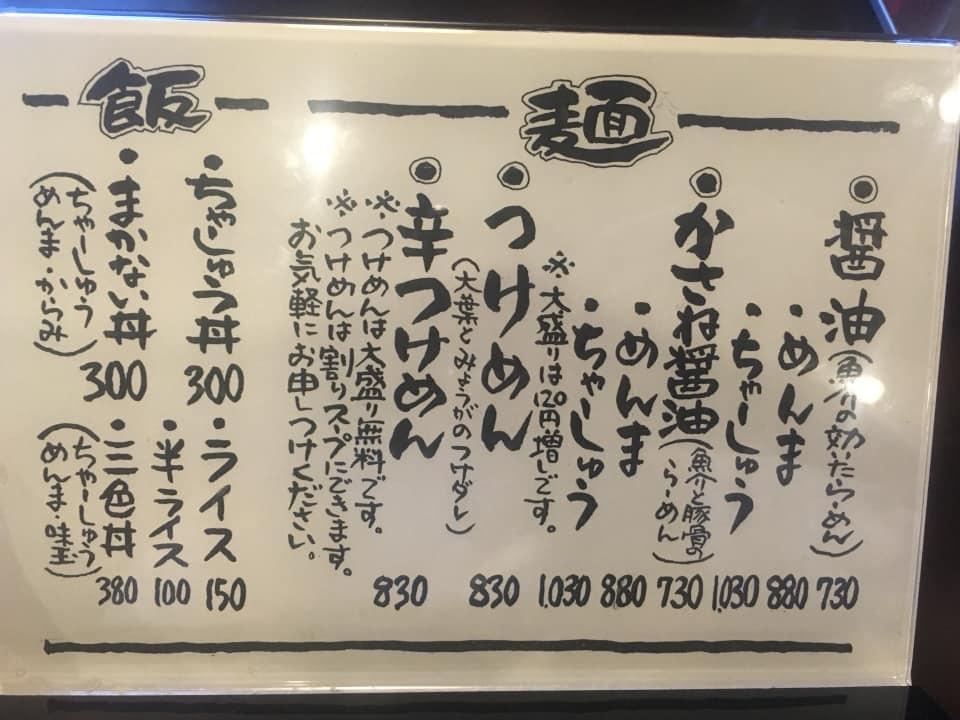 麺
◎醤油(魚介の効いたらーめん) 730
・めんま 880
・ちゃーしゅう 1,030
◎かさね醤油(魚介と豚骨のらーめん) 730
・めんま 880
・ちゃーしゅう 1,030
※大盛りは120円増しです。
◎つけめん 830
(大葉とみょうがのつけダレ)
◎辛つけめん 830
※つけめんは大盛り無料です。
※つけめんは割りスープにできます。
お気軽にお申しつけください。
飯
・ちゃしゅう丼 300
・ライス 150
・半ライス 100
・まかない丼 300
(ちゃーしゅう
めんま・からみ)
・三色丼 380
(ちゃーしゅう
めんま・味玉)